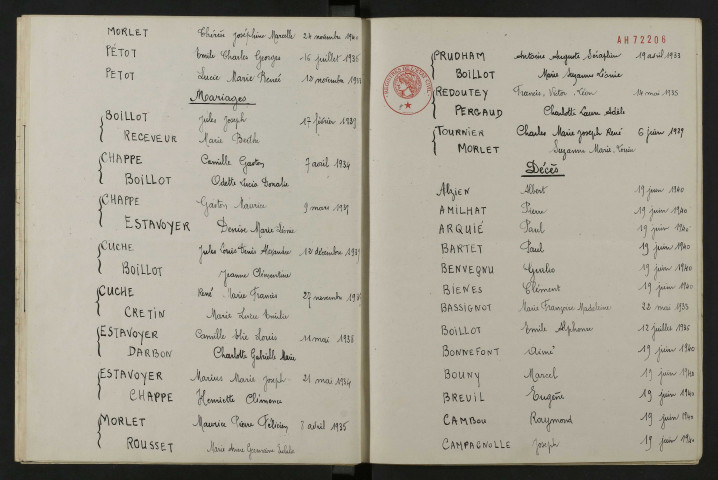 MORLET Thérèse Joséphine Marcelle 27 novembre 1940
PÉTOT Emile Charles Georges 16 juillet 1936
PETOT Lucie Marie Renée 10 novembre
Mariages
BOILLOT Jules Joseph 17 février 1939
RECEVEUR Marie Berthe
CHAPPE Camille Gaston 7 avril 1934
BOILLOT Odette Lucia Donatie
CHAPPE Gaston Maurice 9 mars
ESTAVOYER Denise Marie
CUCHE Jules Louis Alexandre 12 décembre 1939
BOILLOT Jeanne Clémentine
CUCHE René Marie Francis 27 novembre
CRETIN Marie Lucie Emilie
ESTAVOYER Camille Elie Louis 11 mai 1936
DARBON Charlotte Gabrielle Marie
ESTAVOYER Marius Marie Joseph 21 mai 1934
CHAPPE Henriette Clémence
MORLET Maurice Pierre 7 avril 1935
ROUSSET Marie Anne Germaine
AH72206
PRUDHAM Antoine Auguste Séraphin 19 avril 1933
BOILLOT Marie Suzanne Léonie
REDOUTEY Francis Victor Léon 14 mai 1935
PERGAUD Charlotte Laure Adèle
TOURNIER Charles Marie Joseph René 6 juin 1939
MORLET Suzanne Marie Louise
Décès
Alzien Albert 19 juin 1940
AMILHAT Pierre 19 juin 1940
ARQUIÉ Paul 19 juin 1940
BARTET Paul 19 juin 1940
BENVEGNU Giulio 19 juin 1940
BIENES Clément 19 juin 1940
BASSIGNOT Marie Françoise Madeleine 22 mai 1933
BOILLOT Emile Alphonse 12 juillet 1936
BONNEFONT Aimé 19 juin 1940
BOUNY Marcel 19 juin 1940
BREUIL Eugène 19 juin 1940
CAMBOU Raymond 19 juin 1940
CAMPAGNOLLE Joseph 19 juin 1940